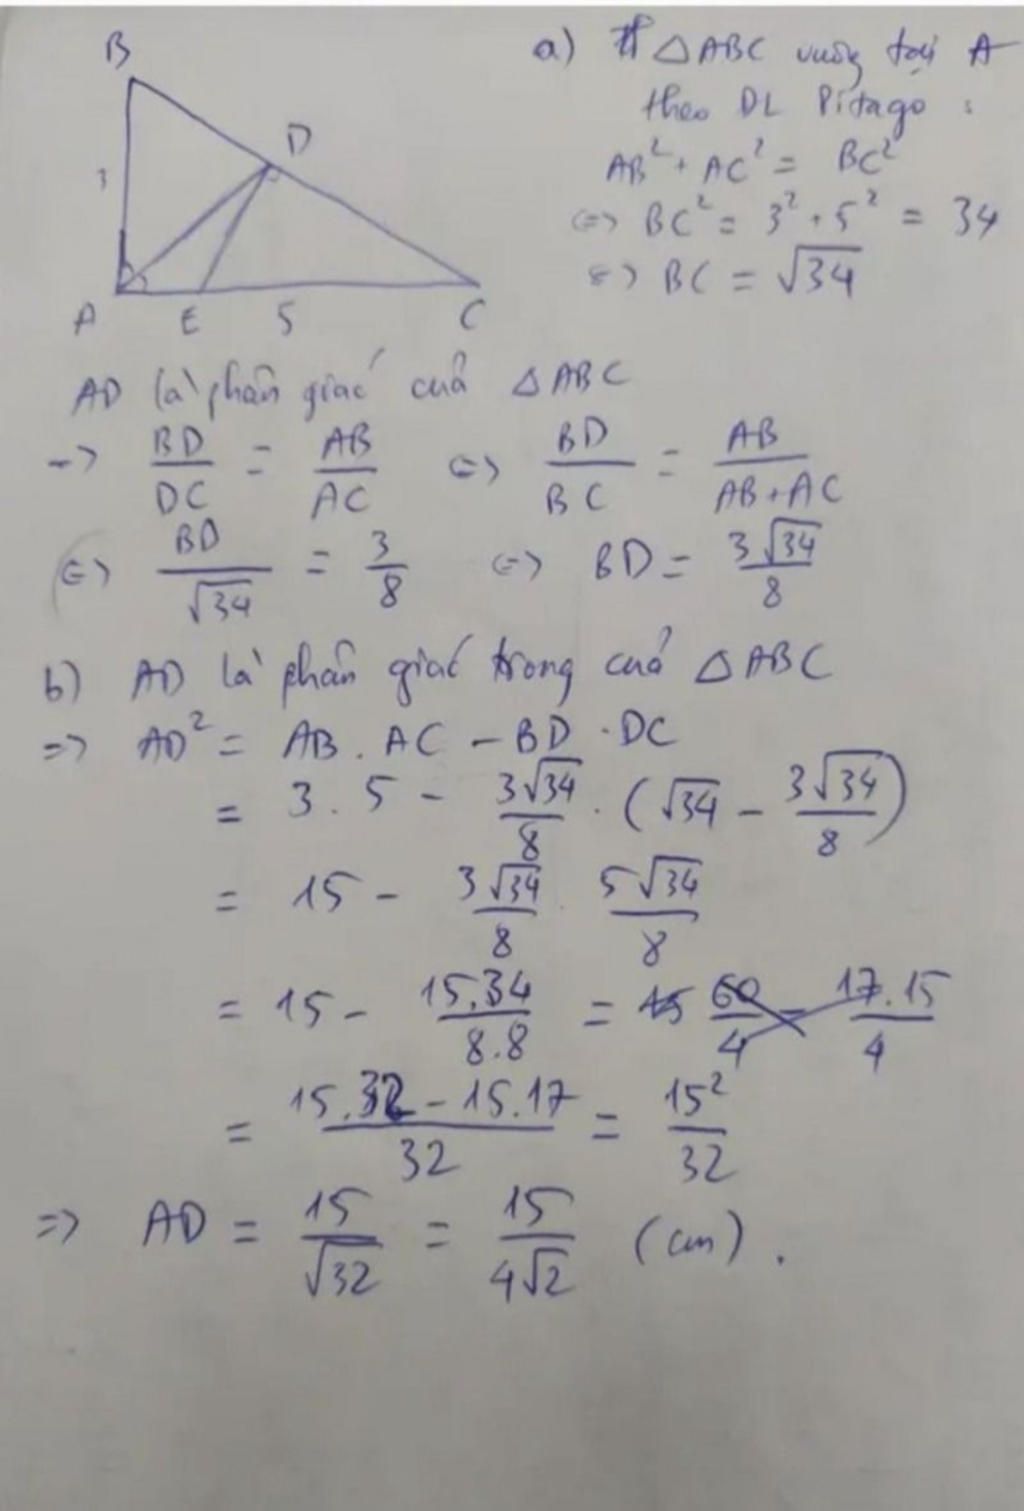 B
D
3
A E 5 C
a) △ABC vuông tại A
theo DL Pitago :
AB² + AC² = BC²
<=> BC² = 3² + 5² = 34
<=> BC = √34
AD là phân giác cuả △ABC
=> BD/DC = AB/AC <=> BD/BC = AB/(AB+AC)
<=> BD/√34 = 3/8 <=> BD = 3√34/8
b) AD là phân giác trong cuả △ABC
=> AD² = AB . AC - BD . DC
= 3 . 5 - 3√34/8 . (√34 - 3√34/8)
= 15 - 3√34/8 . 5√34/8
= 15 - 15.34/8.8 = 15 60/4 - 17.15/4
= (15.32 - 15.17)/32 = 15²/32
=> AD = 15/√32 = 15/4√2 (cm) .